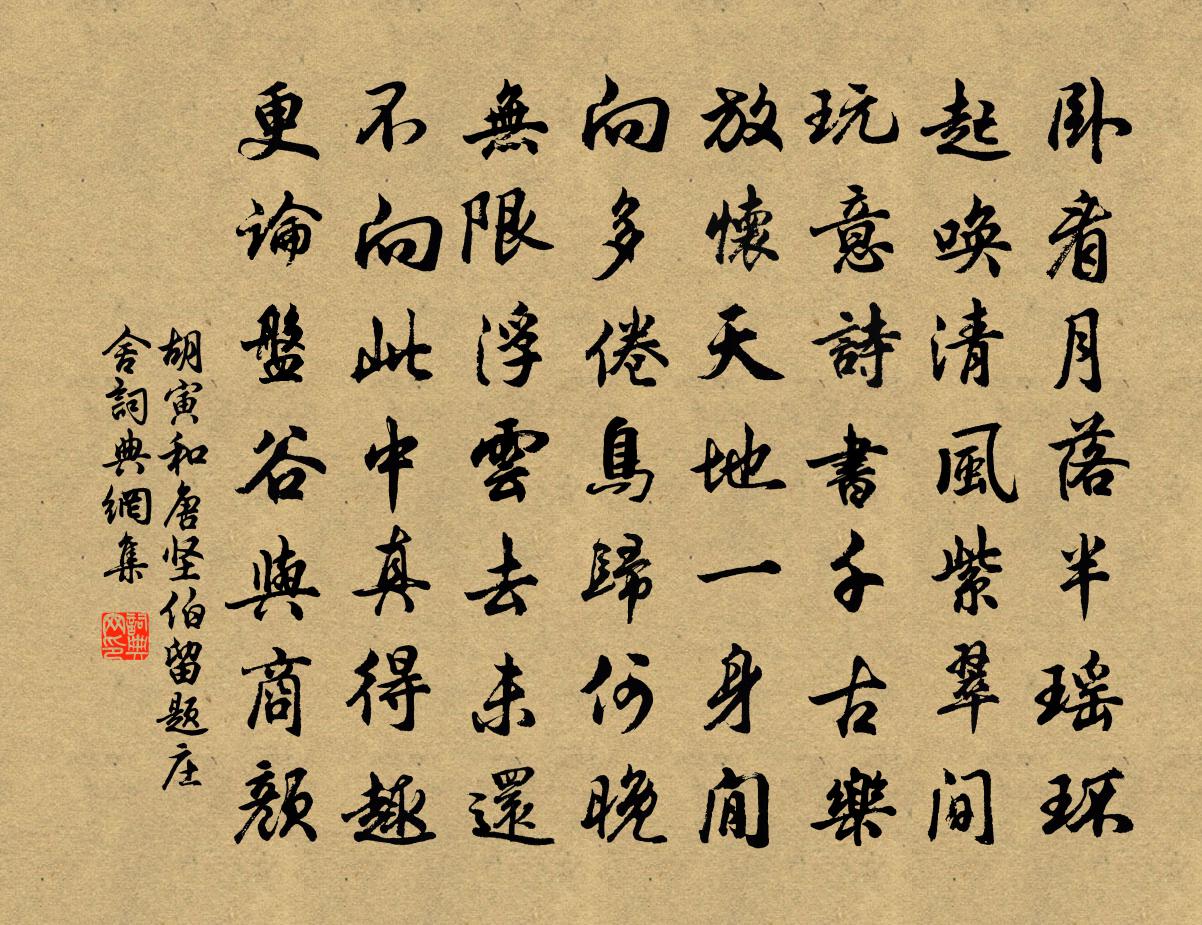 卧看月落半瑶环
起唤清風紫翠間
玩意詩書千古樂
放懷天地一身閒
向多倦鳥歸何晚
無限浮雲去未還
不向此中真得趣
更論盤谷與商顏
胡寅和唐坚伯留题庄
舍詞典網集
詞典网印